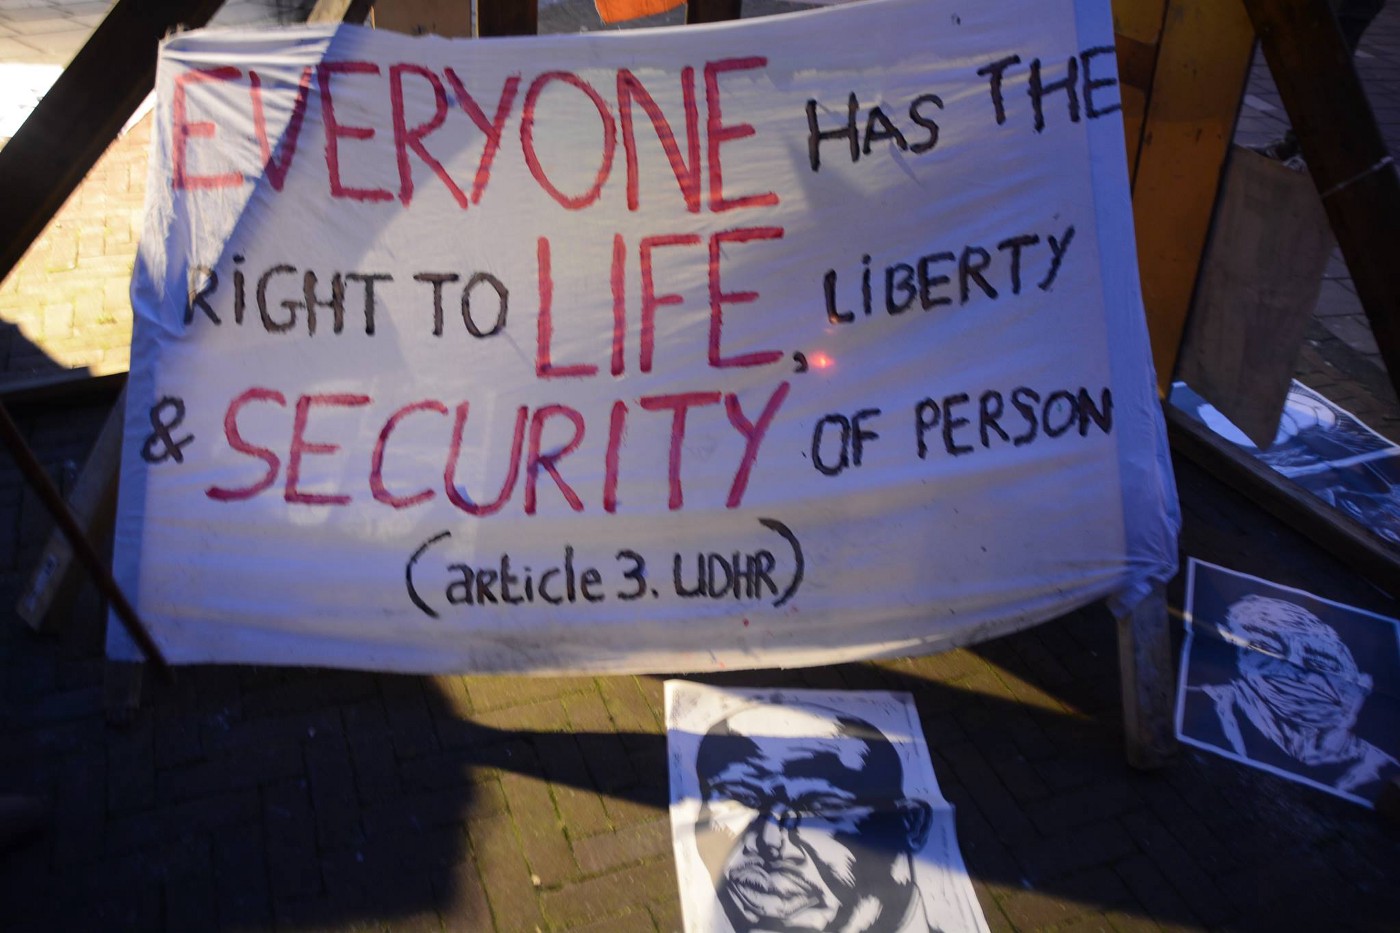 EVERYONE HAS THE
RiGHT TO LIFE, LiBERTY
& SECURITY OF PERSON
(article 3. UDHR)